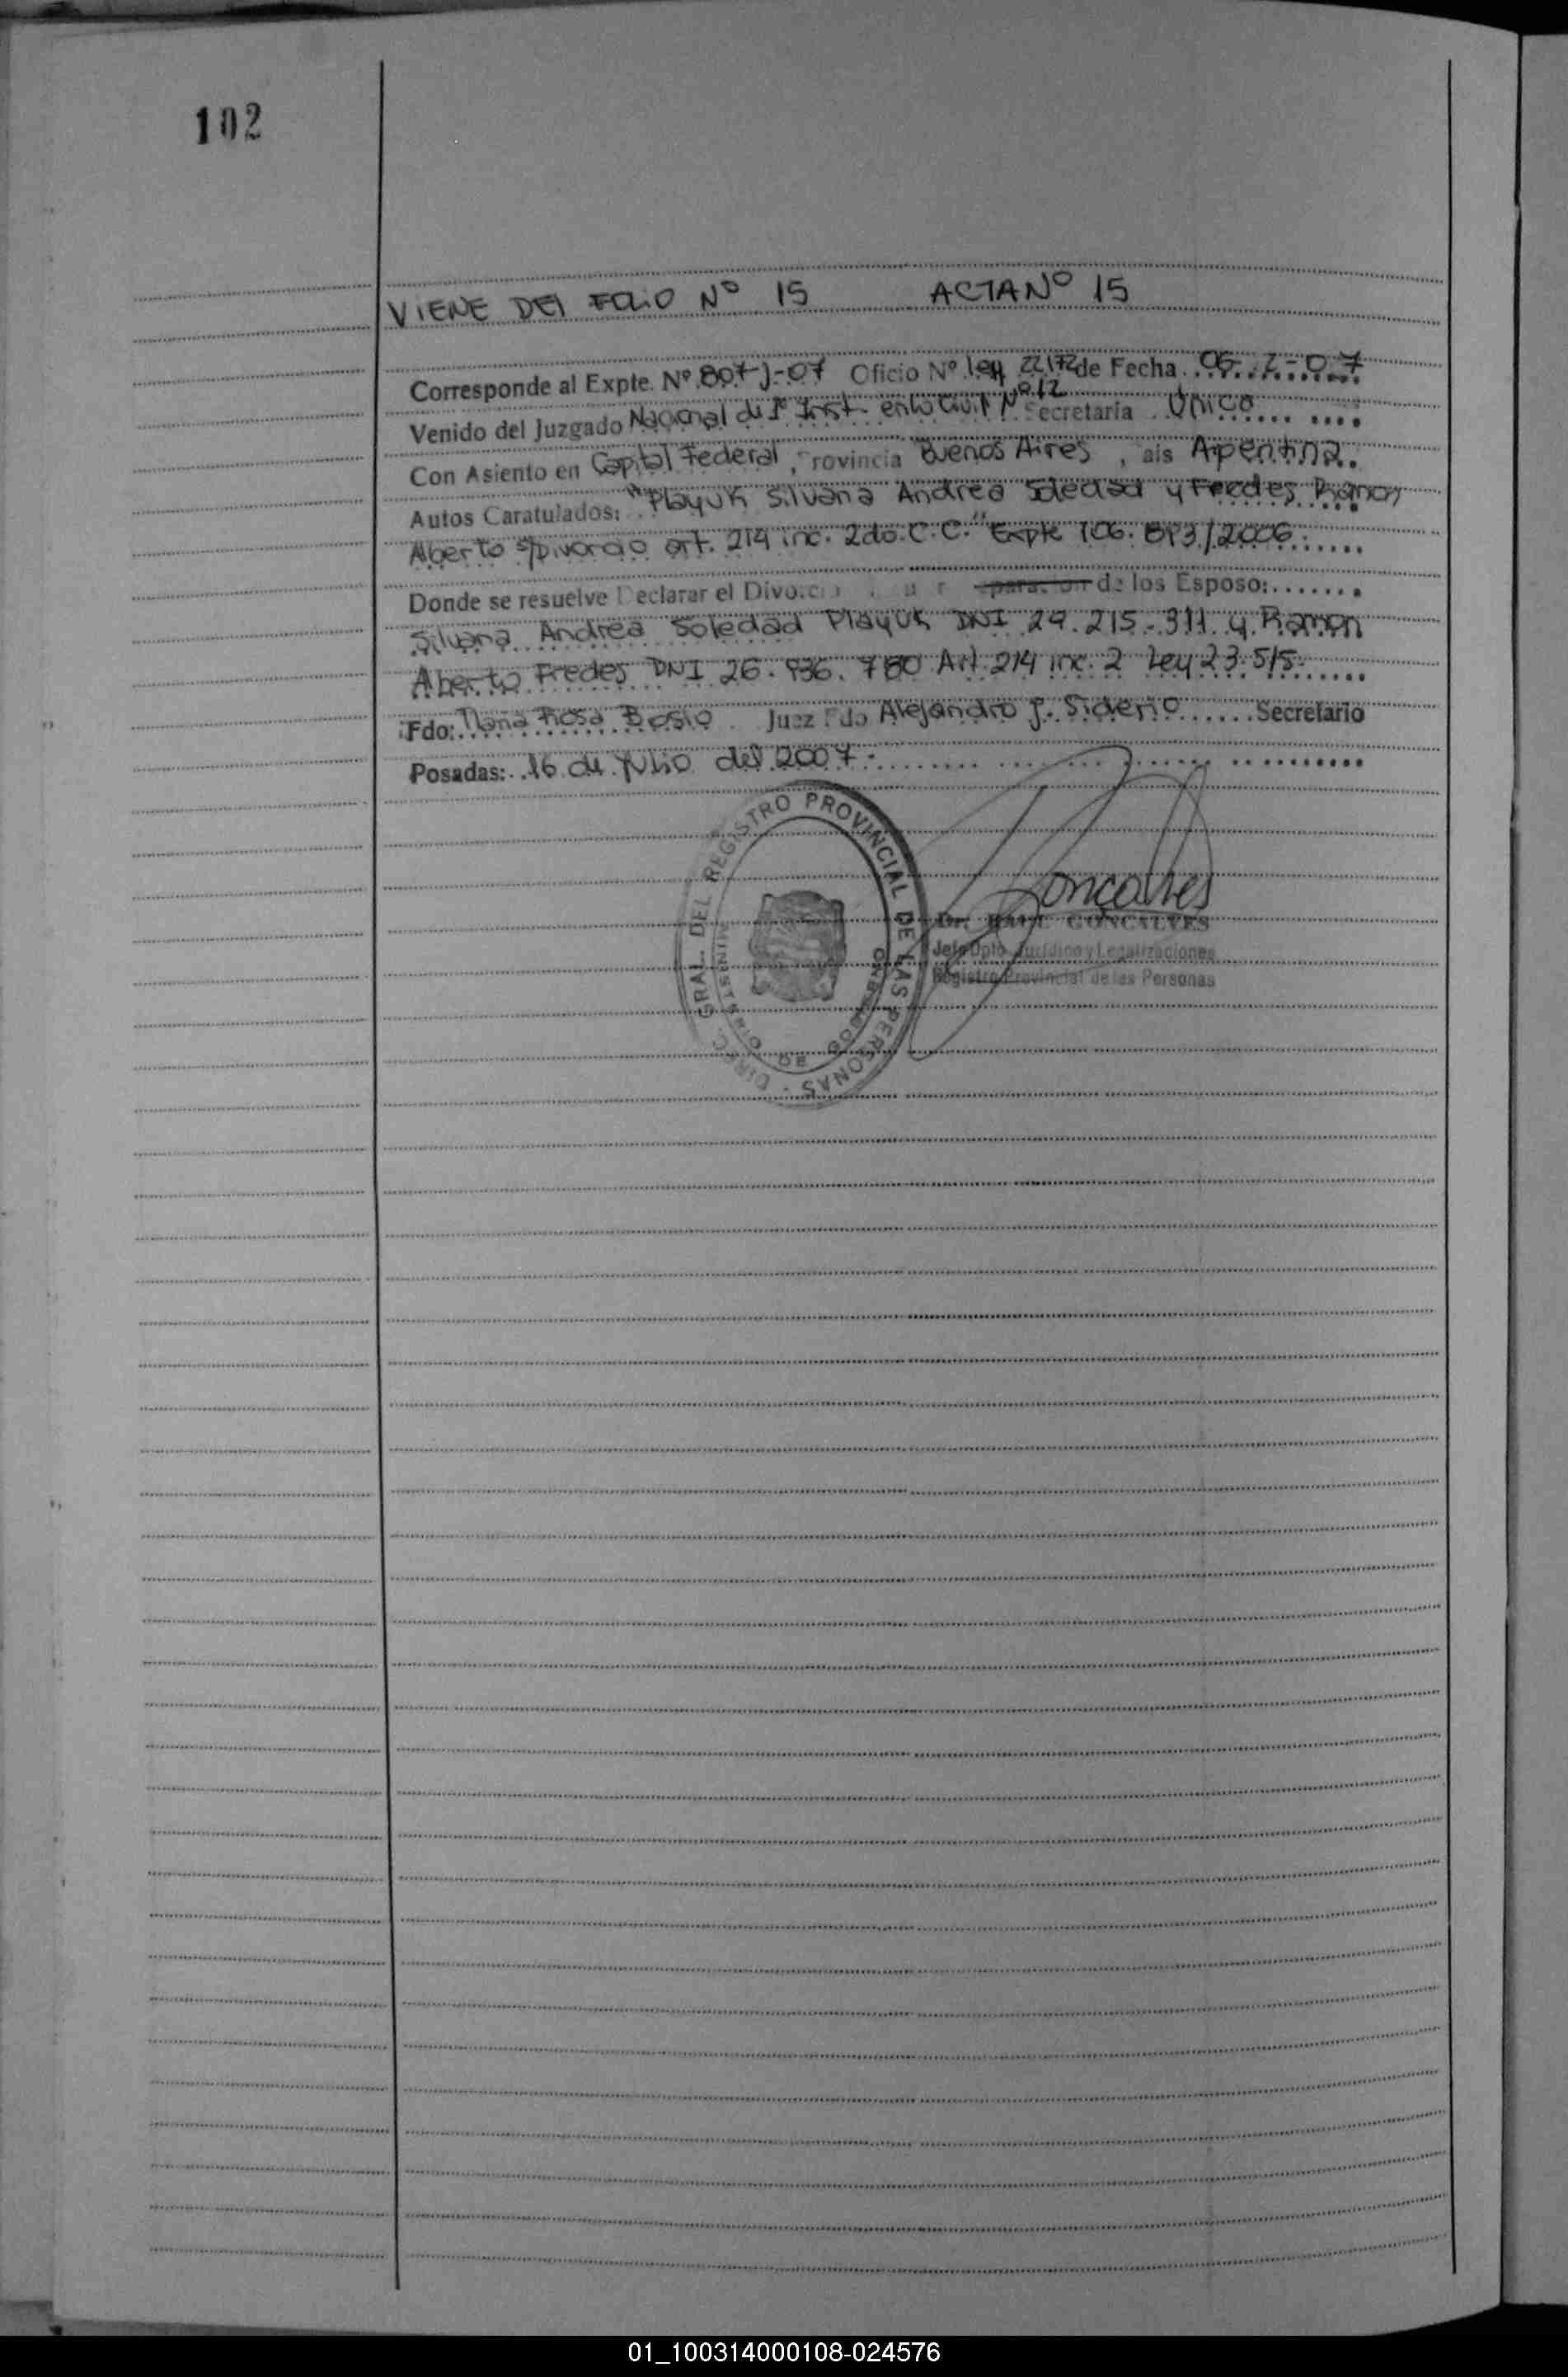 102
VIENE DEl FOLIO Nº 15 ACTA Nº 15
Corresponde al Expte. Nº 807-J-07 Oficio Nº ley 22172 de Fecha 06-2-07
Venido del Juzgado Nacional de 1ª Inst. en lo Civil Nº 12 Secretaria Unica
Con Asiento en Capital Federal, Provincia Buenos Aires, ais Argentina.
Autos Caratulados: "Playuk Silvana Andrea Soledad y Fredes Ramon
Alberto s/Divorcio art. 214 inc. 2do. C.C." Expte 106.893/2006
Donde se resuelve Declarar el Divorcio de los Esposo:
Silvana Andrea Soledad Playuk DNI 29.215.311 y Ramon
Alberto Fredes DNI 26.936.780 Art 214 inc. 2 Ley 23.515.
Fdo: Maria Rosa Bosio Juez Fdo Alejandro J. Siderio Secretario
Posadas: 16 de Julio del 2007.
DIREC. GRAL. DEL REGISTRO PROVINCIAL DE LAS PERSONAS -
MINISTERIO DE GOBIERNO
Goncalves
Dr. RAUL GONCALVES
Jefe Dpto. Jurídico y Legalizaciones
Registro Provincial de las Personas
01_100314000108-024576